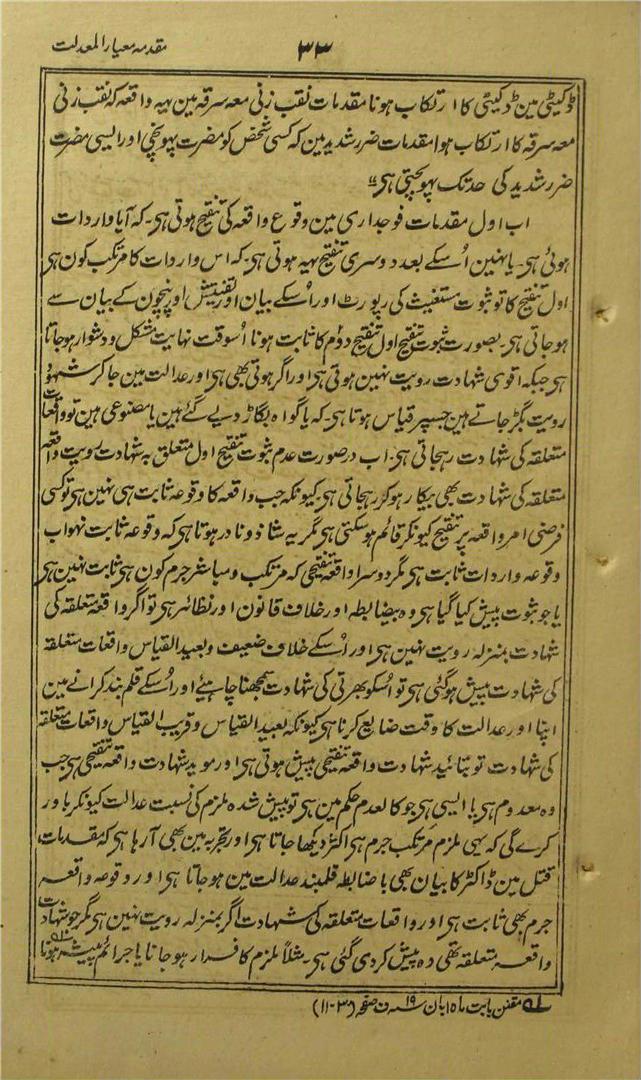 مقدمہ معیار المعدلت
۳۳
ڈکیٹی مین ڈکیٹی کا ارتکاب ہونا مقدمات نقب زنی معہ سرقہ مین یہہ واقعہ کہ نقب زنی
معہ سرقہ کا ارتکاب ہوا مقدمات ضرر شدید مین کہ کسی شخص کو مضرت پہونچی اور ایسی مضرت
ضرر شدید کی حد تک پہونچتی ہی
اب اول مقدمات فوجداری مین وقوع واقعہ کی تنقیح ہوتی ہی۔ کہ آیا واردات
ہوئی ہی۔ یا نہین اُسکے بعد دوسری تنقیح یہہ ہوتی ہی۔ کہ اس واردات کا مرتکب کون ہی
اول تنقیح کا تو ثبوت مستغیث کی رپورٹ اور اُسکے بیان اور تفتیش اور پنچون کے بیان سے
ہو جاتی ہی۔ بصورت ثبوت تنقیح اول تنقیح دوُم کا ثابت ہونا اُسوقت نہایت مشکل و دشوار ہو جاتا
ہی جبکہ اقوی شہادت رویت نہین ہوتی ہی اور اگر ہوتی بھی ہی اور عدالت مین جا کر شہود
رویت بگڑ جاتے ہین جسپر قیاس ہوتا ہی۔ کہ یا گواہ بگاڑ دیے گئے ہین یا مصنوعی ہین تو واقعات
متعلقہ کی شہادت رہجاتی ہی۔ اب درصورت عدم ثبوت تنقیح اول متعلق بہ شہادت رویت واقعہ
متعلقہ کی شہادت بھی بیکار ہو کر رہجاتی ہی۔ کیونکہ جب واقعہ کا وقوعہ ثابت ہی نہین ہی تو کسی
فرضی امر واقعہ پر تنقیح کیونکر قائم ہو سکتی ہی مگر یہ شاذ و نادر ہوتا ہی کہ وقوعہ ثابت نہو اب
وقوعہ واردات ثابت ہی مگر دوسرا واقعہ تنقیحی کہ مرتکب و مباشر جرم کون ہی ثابت نہین ہی
یا جو ثبوت پیش کیا گیا ہی وہ بیضابطہ اور خلاف قانون اور نظائر ہی تو اگر واقعہ متعلقہ کی
شہادت بمنزلہ رویت نہین ہی اور اُسکے خلاف ضعیف و بعید القیاس واقعات متعلقہ
کی شہادت پیش ہو گئی ہی تو اُسکو بھرتی کی شہادت سمجھنا چاہیئے اور اُسکے قلمبند کرانے مین
اپنا اور عدالت کا وقت ضایع کرنا ہی کیونکہ بعید القیاس و قریب القیاس واقعات متعلقہ
کی شہادت تو بتائید شہادت واقعہ تنقیحی پیش ہوتی ہی اور موید شہادت واقعہ تنقیحی ہی جب
وہ معدوم ہی یا ایسی ہی جو کالعدم حکم مین ہی تو پیش شدہ ملزم کی نسبت عدالت کیونکر باور
کرے گی کہ یہی ملزم مرتکب جرم ہی اکثر دیکھا جاتا ہی اور تجربہ مین بھی آ رہا ہی کہ مقدمات
قتل مین ڈاکٹر کا بیان بھی باضابطہ قلمبند عدالت مین ہو جاتا ہی اور وقوعہ واقعہ
جرم بھی ثابت ہی اور واقعات متعلقہ کی شہادت اگر بمنزلہ رویت نہین ہی مگر جو شہادت
واقعہ متعلقہ تھی وہ پیش کر دی گئی ہی۔ مثلاً ملزم کا فرار ہو جانا یا جرائم پیشہ ہونا
مقنن بابت ماہ ابان ۱۹ سنہ ف صفحہ (۳-۱۱)